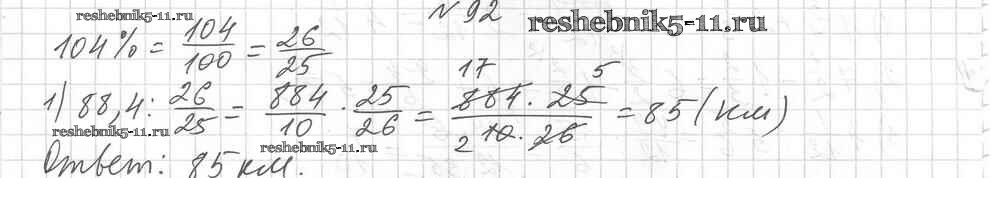 reshebnik5-11.ru
№ 92
reshebnik5-11.ru
104% = 104/100 = 26/25
1) 88,4 : 26/25 = 884/10 · 25/26 = 17 884 · 25 5 / 2 10 · 26 = 85 (км)
reshebnik5-11.ru
reshebnik5-11.ru
Ответ: 85 км.